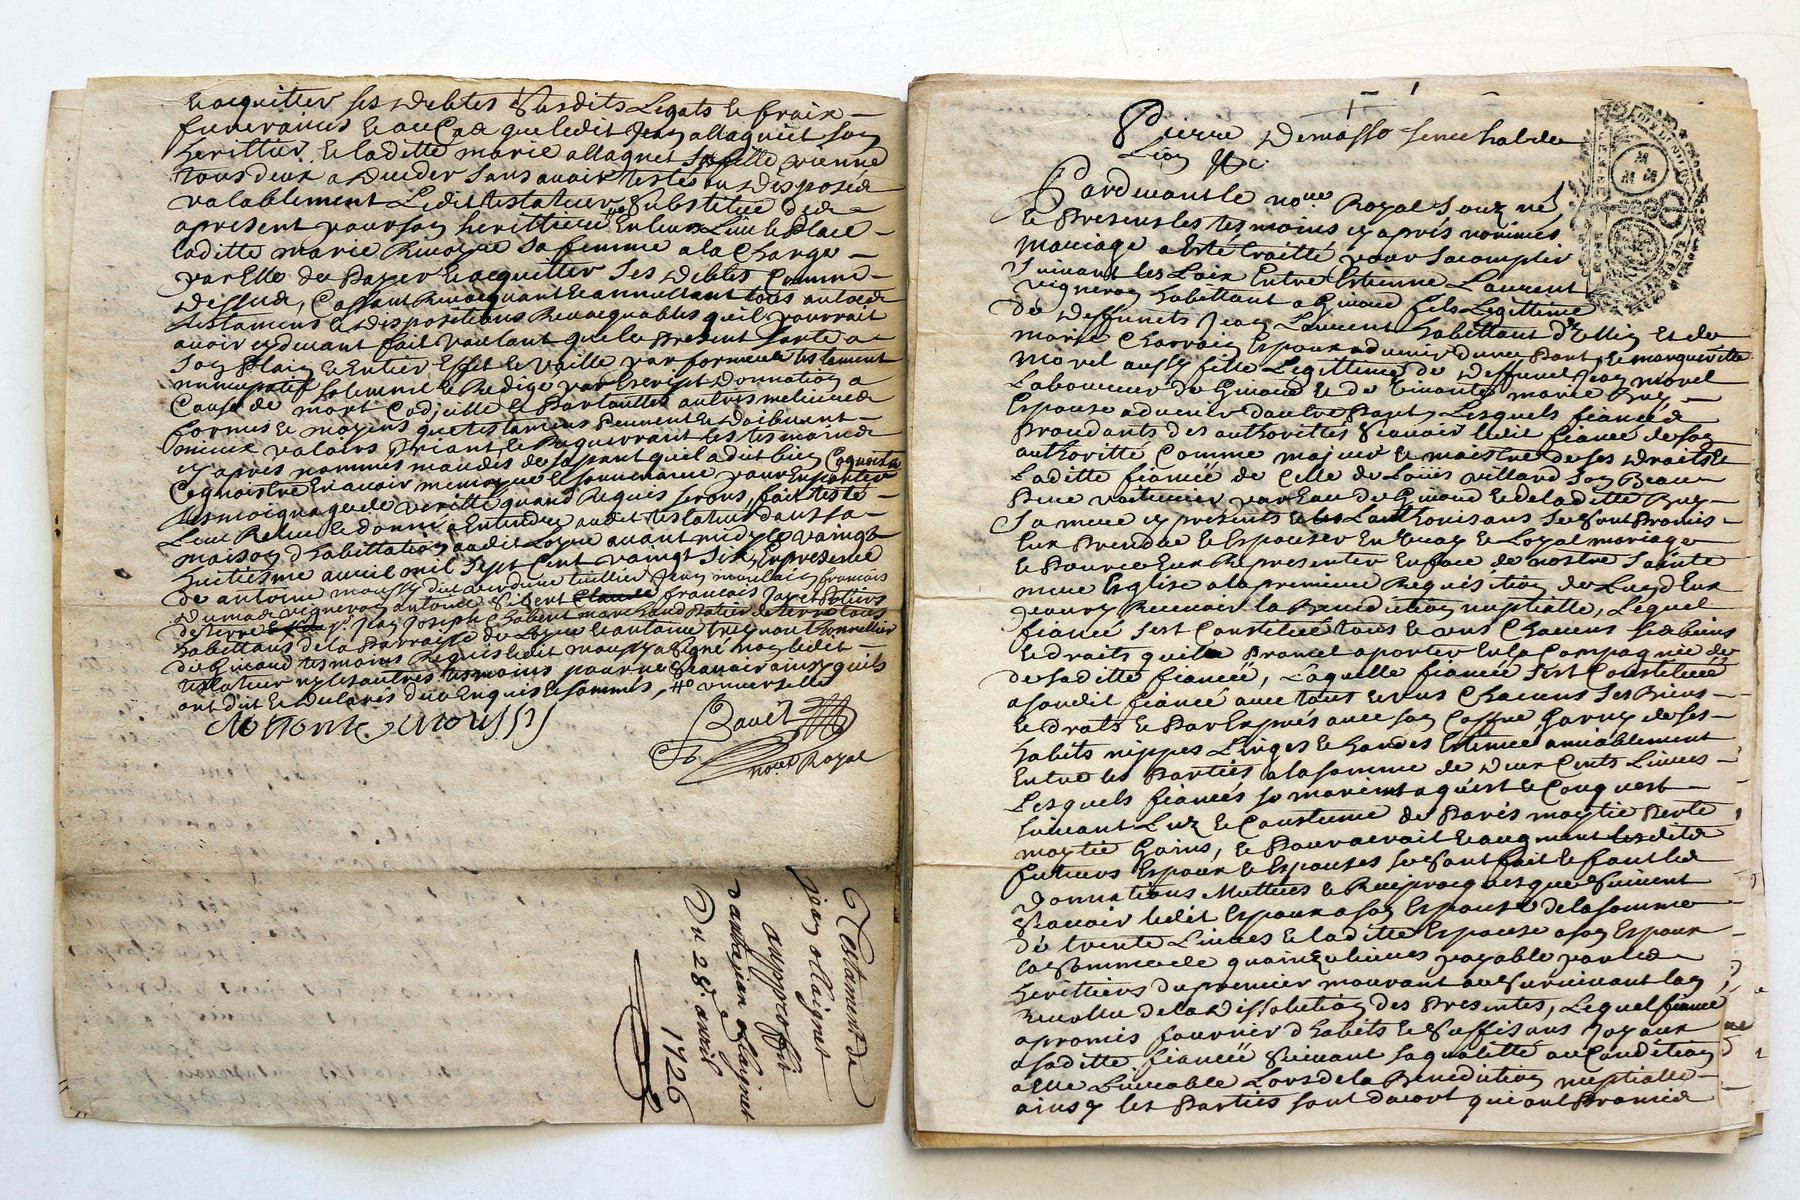 et acquitter ses debtes susdits legats et fraix
funeraires et au cas que ledit Jean allagniet son
herittier et laditte marie allagnet sa fille vienne
tous deux a deceder sans avoir testés ou disposés
valablement ledit testateur substitue des
apresent pour son herittiere en leur lieu et place
laditte marie sa femme a la charge
par elle de payer et acquitter ses debtes comme
dessus, Cassant revocquant et annullant tous autres
testamens et dispositions revocquables qu'il pourrait
avoir cy devant fait voulant que le present sorte a
son plain et entier effet et vaille par forme de testament
nuncupatif solemnel et redigé par escript donnation a
cause de mort codicille et par touttes autres meilleures
formes et moyens que testamens peuvent et doibvent
mieux valoir, priant et requerrant les tesmoins
cy apres nommés mandés de sa part qu'il a dit bien cognoistre
en avoir memoire et souvenance pour en porter
tesmoignage de verité quand requis seront, fait testé
leu et donné a entendre audit testateur dans sa
maison d'habittation audit avant midy le vaingt
huitiesme avril mil sept cent vaingt six, en presence
de antoine moussy tuillier Jean francois
vigneron antoine Gibert Claude francois potiers
de terre Jean Joseph Chabert marchand potier de terre tous
habittans de la parroisse de et antoine tonnellier
de Givord tesmoins requis ledit moussy a signé non ledit
testateur ny les autres tesmoins pour ne sçavoir ainsy qu'ils
ont dit et declarés de ce enquis et sommés, universelle
Antoine moussy
nore Royal
Testament de
jean allaignet
au proffit
d'autre jean allaignet
Du 28e avril
1726
Pierre Demasso senechal de
Lion &c.
Pardevant le nore Royal sousne
et presens les tesmoins cy après nommés
mariage a esté traitté pour s'acomplir
suivant les loix Entre Estienne Laurent
vigneron habittant a Givord fils legittime
de deffunets Jean Laurent habittant et de
marie Charvain espoux advenir d'une part, et margueritte
morel aussy fille legittime de deffunct Jean morel
laboureur de Givord et de vivante marie Rey
espouse advenir d'autre part, lesquels fiancés
procedants des authorittés sçavoir ledit fiancé de son
authoritté comme majeur et maistre de ses droits et
laditte fiancée de celle de Loüis villard son beau
pere voiturier par Eau de Givord et de laditte Rey
sa mere cy présents et les authorisans se sont promis
eux prendre et espouser en vray et loyal mariage
et pource eux representer en face de nostre sainte
mere Eglise a la premiere requisition de l'un d'eux
pour y recevoir la benediction nuptialle, lequel
fiancé s'est constitué tous et uns chacuns ses biens
et droits qu'il promet aporter en la compagnie de
de saditte fiancée, laquelle fiancée s'est constituée
a sondit fiancé avec tous et uns chacuns ses biens
et droits et par exprés avec son coffre garny de ses
habits nippes linges et hardes estimé amiablement
entre les parties a la somme de deux cents livres
lesquels fiancés se marient a quest et conquest
suivant l'uz et coustume de Paris moytié perte
moytié gains, et pour acroit et augment lesdits
futurs espoux et espouses se sont fait et font les
donnations mutües et reciprocques que suivent
sçavoir ledit espoux a son espouse de la somme
de trente livres et laditte espouse a son espoux
la somme de quainze livres payable par les
herittiers du premier mourant au survivant lors
de la dissolution des presentes, lequel fiancé
a promis fournir d'habits et suffisans joyaux
a saditte fiancée suivant sa qualitté ou condition
a elle livrable lors de la benediction nuptialle
ainsy les parties sont d'acort qui ont promis